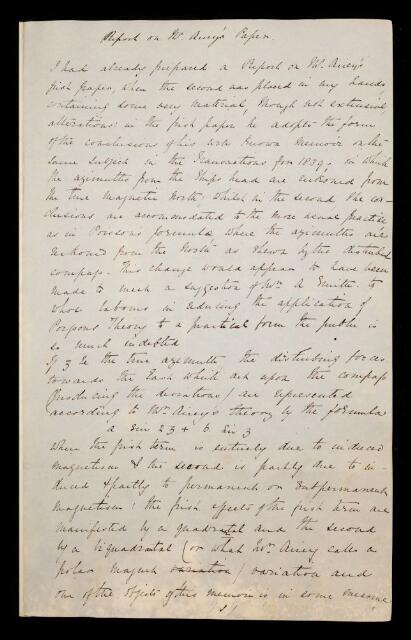 Report on Mr Airy's Paper.
I had already prepared a Report on Mr. Airy's
first paper, when the second was placed in my hands,
containing some very material, though not extensive
alterations: in the first paper he adopts the form
of the conclusions of his well known Memoir on the
same subject in the Transactions for 1839, in which
the azimuths from the Ships head are reckoned from
the true magnetic North, whilst in the second the con-
clusions are accommodated to the more usual practice
as in Poisson's formulæ where the azimuths are
reckoned from the North as shewn by the disturbed
compass. This change would appear to have been
made to meet a suggestion of Mr. A Smith to
whose labours in reducing the application of
Poissons Theory to a practical form the public is
so much indebted
If z be the true azimuth the disturbing forces
towards the East which act upon the compass
(producing the deviations) are represented
according to Mr Airy's theory by the formula
a sin 2 z + b sin z
Where the first term is entirely due to induced
magnetism & the second is partly due to in-
duced & partly to permanent or subpermanent
magnetism: the first effects of the first term are
manifested by a quadrantal and the second
by a (or what Mr. Airy calls a
polar magnet variation) variation and
one of the objects of this memoir is in some measure